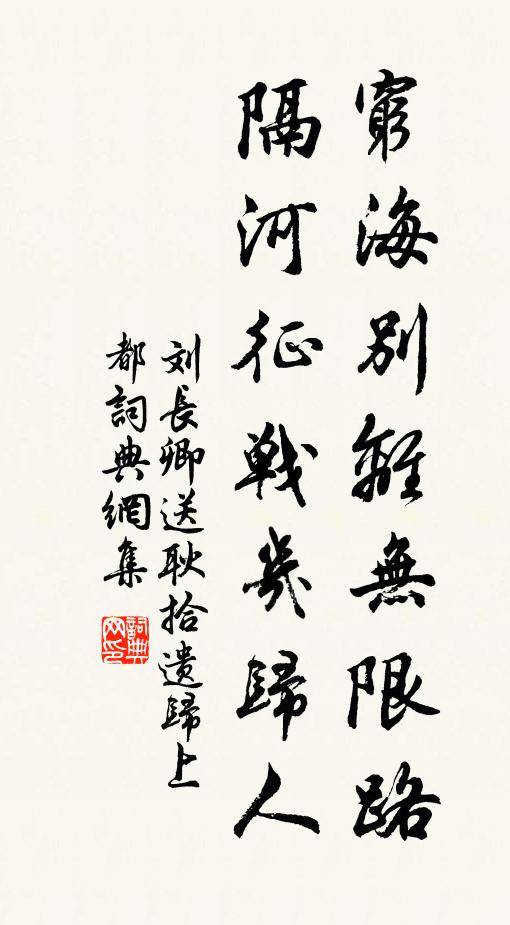 窮海別離無限路
隔河征戰幾歸人
刘長卿送耿拾遺歸上
都詞典網集
詞典
网印